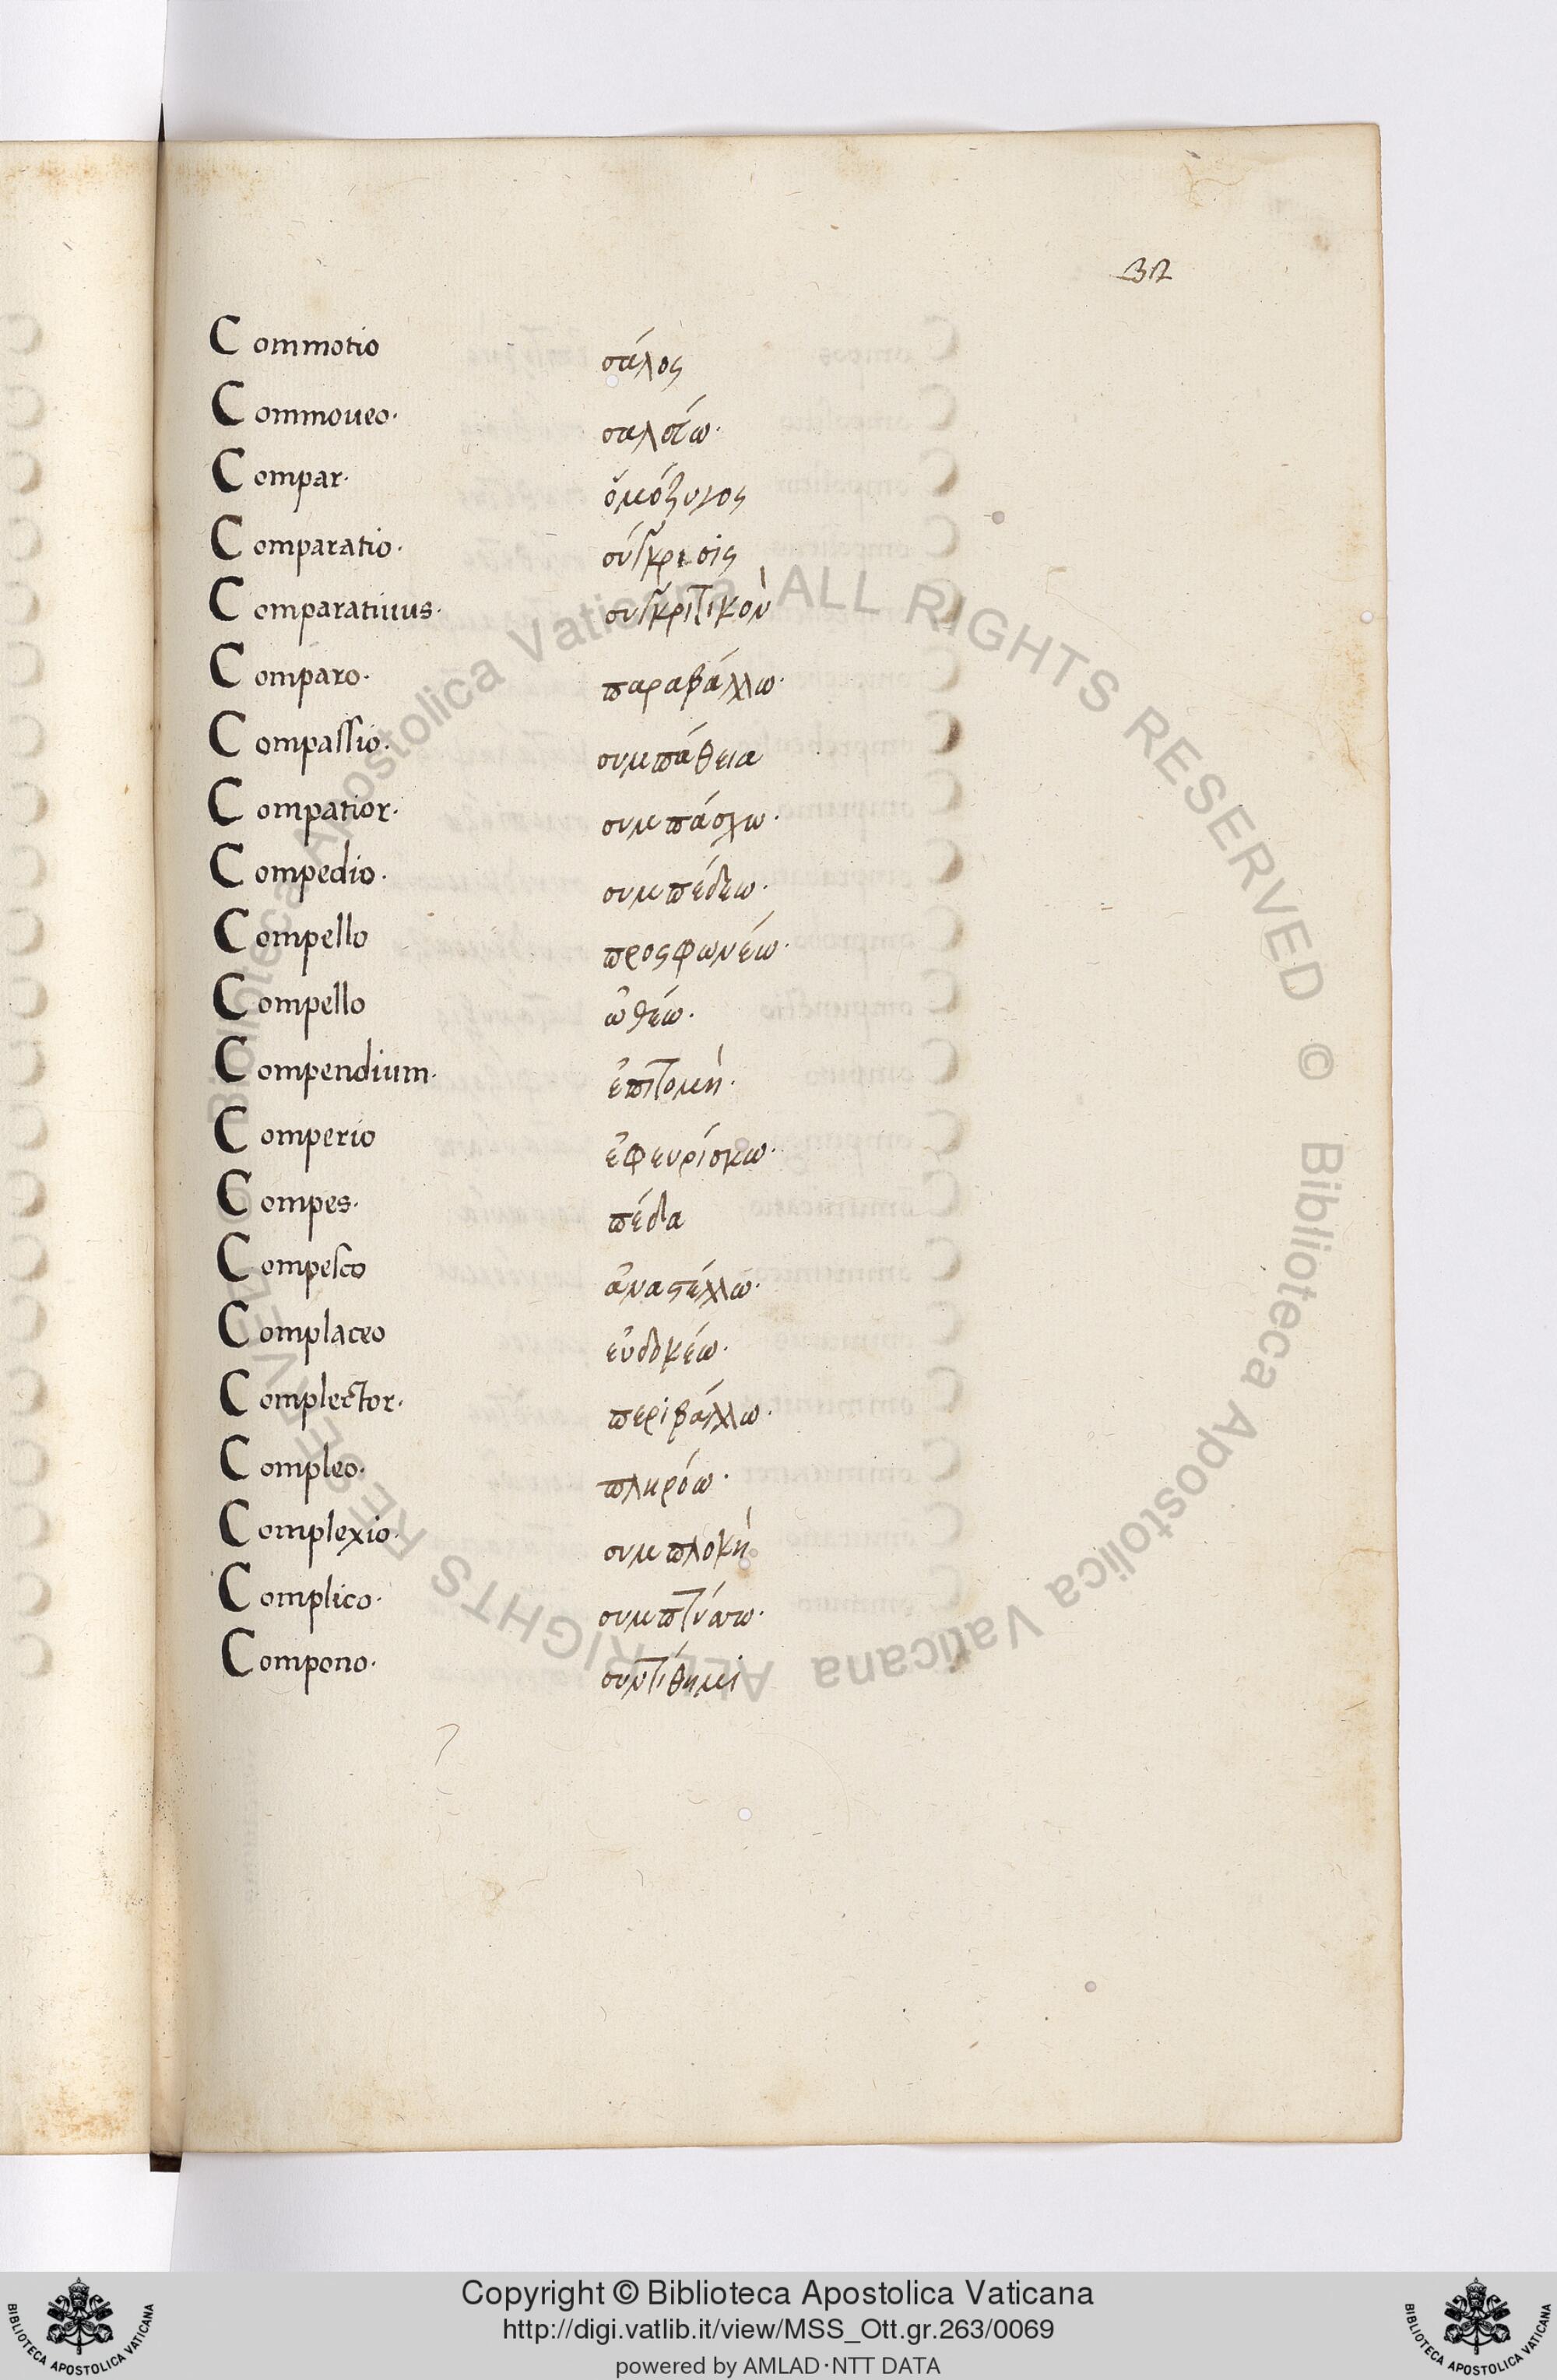 32
Commotio σάλος
Commoueo· σαλεύω·
Compar· ὁμόζυγος
Comparatio· σύγκρισις
Comparatiuus· συγκριτικὸν
Comparo· παραβάλλω·
Compassio· συμπάθεια
Compatior· συμπάσχω·
Compedio· συμπέδεω·
Compello προςφωνέω·
Compello ὠθέω·
Compendium· ἐπιτομὴ·
Comperio ἐφευρίσκω·
Compes· πέδα
Compesco ἀναστέλλω·
Complaceo εὐδοκέω·
Complector· περιβάλλω·
Compleo· πληρόω·
Complexio· συμπλοκὴ
Complico· συμπτύσσω·
Compono· συντίθημι
© Biblioteca Apostolica Vaticana ALL RIGHTS RESERVED © Biblioteca Apostolica Vaticana ALL RIGHTS RESERVED
BIBLIOTECA APOSTOLICA VATICANA
Copyright © Biblioteca Apostolica Vaticana
http://digi.vatlib.it/view/MSS_Ott.gr.263/0069
powered by AMLAD·NTT DATA
BIBLIOTECA APOSTOLICA VATICANA